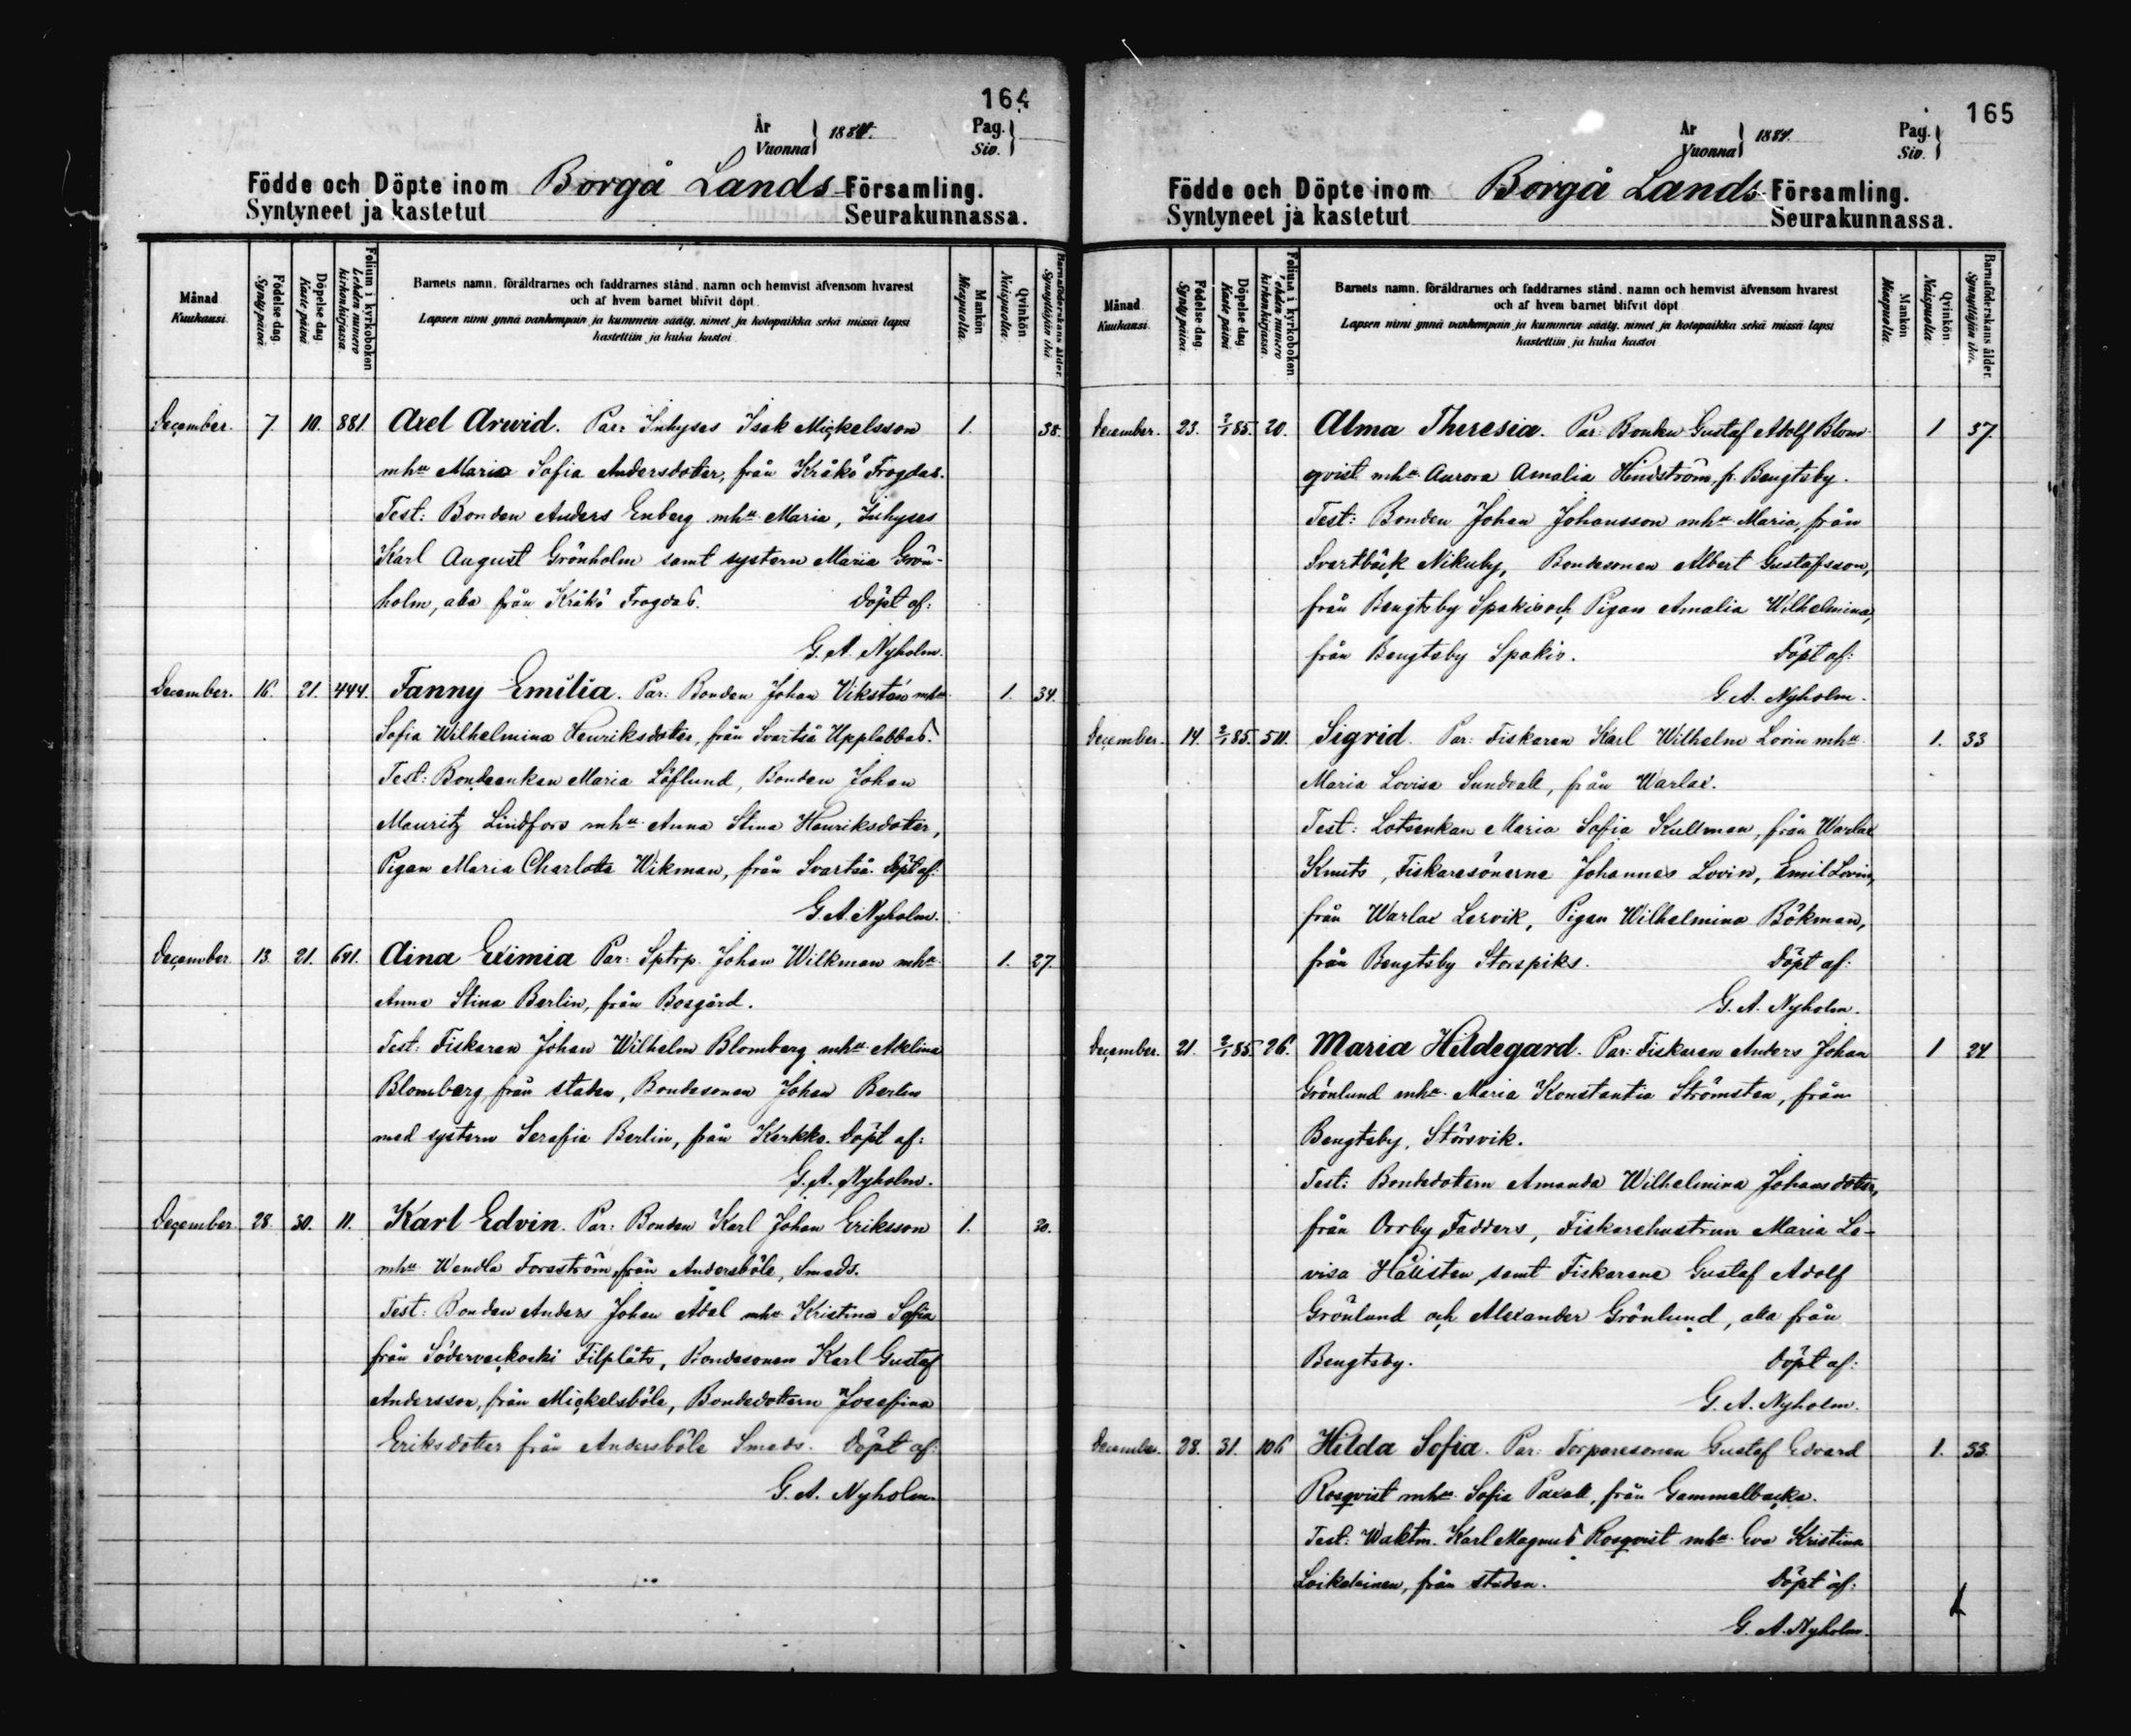 164
År
Vuonna
1884.
Pag.
Siv.
Födde och Döpte inom Borgå Lands Församling.
Syntyneet ja kastetut Seurakunnassa.
Månad
Kuukausi
Födelse dag.
Synty päivä
Döpelse dag.
Kaste päivä
Folium i kyrkoboken
Lehden numero kirkonkirjassa.
Barnets namn, föräldrarnes och faddrarnes stånd, namn och hemvist äfvensom hvarest
och af hvem barnet blifvit döpt.
Lapsen nimi ynnä vanhempain ja kummein sääty, nimet ja kotopaikka sekä missä lapsi
kastettiin ja kuka kastoi
Mankön
Miespuolta.
Qvinkön.
Naispuolta.
Barnaföderskans ålder.
Synnyttäjän ikä.
December. 7. 10. 881. Axel Arwid. Par: Inhyses Isak Mickelsson 1. 38.
mhu Maria Sofia Andersdotter, från Kråkö Frogdas.
Test: Bonden Anders Enberg mhu Maria, Inhyses
Karl August Grönholm samt systern Maria Grön-
holm, alla från Kråkö Frogdas. Döpt af:
G. A. Nyholm.
December. 16. 21. 444. Fanny Emilia. Par: Bonden Johan Vikstén mhu 1. 34.
Sofia Wilhelmina Henriksdotter, från Svartså Upplabbas.
Test: Bondeenkan Maria Löflund, Bonden Johan
Mauritz Lindfors mhu Anna Stina Henriksdotter,
Pigan Maria Charlotta Wikman, från Svartså. Döpt af:
G. A. Nyholm.
December. 13. 21. 641. Aina Eximia Par: Sptrp. Johan Wilkman mhu 1. 27.
Anna Stina Berlin, från Bosgård.
Test: Fiskaren Johan Wilhelm Blomberg mhu Adelina
Blomberg från staden, Bondesonen Johan Berlin
med systern Serafia Berlin, från Kerkko. Döpt af:
G. A. Nyholm.
December 28. 30. 11. Karl Edvin. Par: Bonden Karl Johan Eriksson 1. 20.
mhu Wendla Forsström, från Andersböle, Smeds.
Test: Bonden Anders Johan Ådal mhu Kristina Sofia
från Söderveckoski Filplåts, Bondesonen Karl Gustaf
Andersson, från Mickelsböle, Bondedottern Josefina
Eriksdotter från Andersböle Smeds. Döpt af:
G. A. Nyholm.
165
År
Vuonna
1884.
Pag.
Siv.
Födde och Döpte inom Borgå Lands Församling.
Syntyneet ja kastetut Seurakunnassa.
Månad
Kuukausi
Födelse dag.
Synty päivä
Döpelse dag.
Kaste päivä
Folium i kyrkoboken
Lehden numero kirkonkirjassa.
Barnets namn, föräldrarnes och faddrarnes stånd, namn och hemvist äfvensom hvarest
och af hvem barnet blifvit döpt
Lapsen nimi ynnä vanhempain ja kummein sääty, nimet ja kotopaikka sekä missä lapsi
kastettiin ja kuka kastoi
Mankön
Miespuolta.
Qvinkön.
Naispuolta.
Barnaföderskans ålder.
Synnyttäjän ikä.
December. 23. 2/1 85. 20. Alma Theresia. Par: Bonden Gustaf Adolf Blom- 1 37.
qvist mhu Aurora Amalia Hindström, fr. Bengtsby.
Test: Bonden Johan Johansson mhu Maria, från
Svartbäck Nikuby, Bondesonen Albert Gustafsson,
från Bengtsby Spakis och Pigan Amalia Wilhelmina,
från Bengtsby Spakis. Döpt af:
G. A. Nyholm.
December. 14. 2/1 85. 511. Sigrid. Par: Fiskaren Karl Wilhelm Lovin mhu 1. 33
Maria Lovisa Sundvall, från Warlax.
Test: Lotsenkan Maria Sofia Kullman, från Warlax
Knuts, Fiskaresönerne Johannes Lovin, Emil Lovin,
från Warlax Lervik, Pigan Wilhelmina Bökman,
från Bengtsby Storspiks. Döpt af:
G. A. Nyholm.
December. 21. 2/1 85. 26. Maria Hildegard. Par: Fiskaren Anders Johan 1 24.
Grönlund mhu Maria Konstantia Strömsten, från
Bengtsby, Storsvik.
Test: Bondedottern Amanda Wilhelmina Johansdotter,
från Orrby Fadders, Fiskarehustrun Maria Lo-
visa Hällsten, samt Fiskarena Gustaf Adolf
Grönlund och Alexander Grönlund, alla från
Bengtsby. Döpt af:
G. A. Nyholm.
December. 28. 31. 106 Hilda Sofia. Par: Torparesonen Gustaf Edvard 1. 33.
Rosqvist mhu Sofia Paxall, från Gammelbacka.
Test: Waktm. Karl Magnus Rosqvist mhu Eva Kristina
Loikalainen, från staden. Döpt af:
G. A. Nyholm.